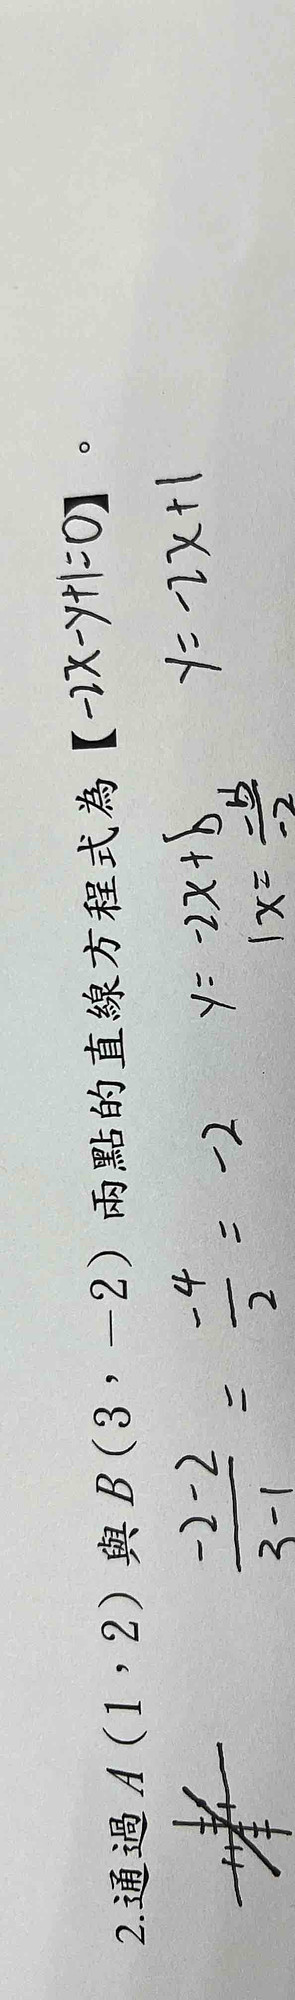 2.通過 A(1,2)與 B(3,-2)兩點的直線方程式為【-2x-y+1=0】。
-2-2/3-1 = -4/2 = -2 y=-2x+b y=-2x+1